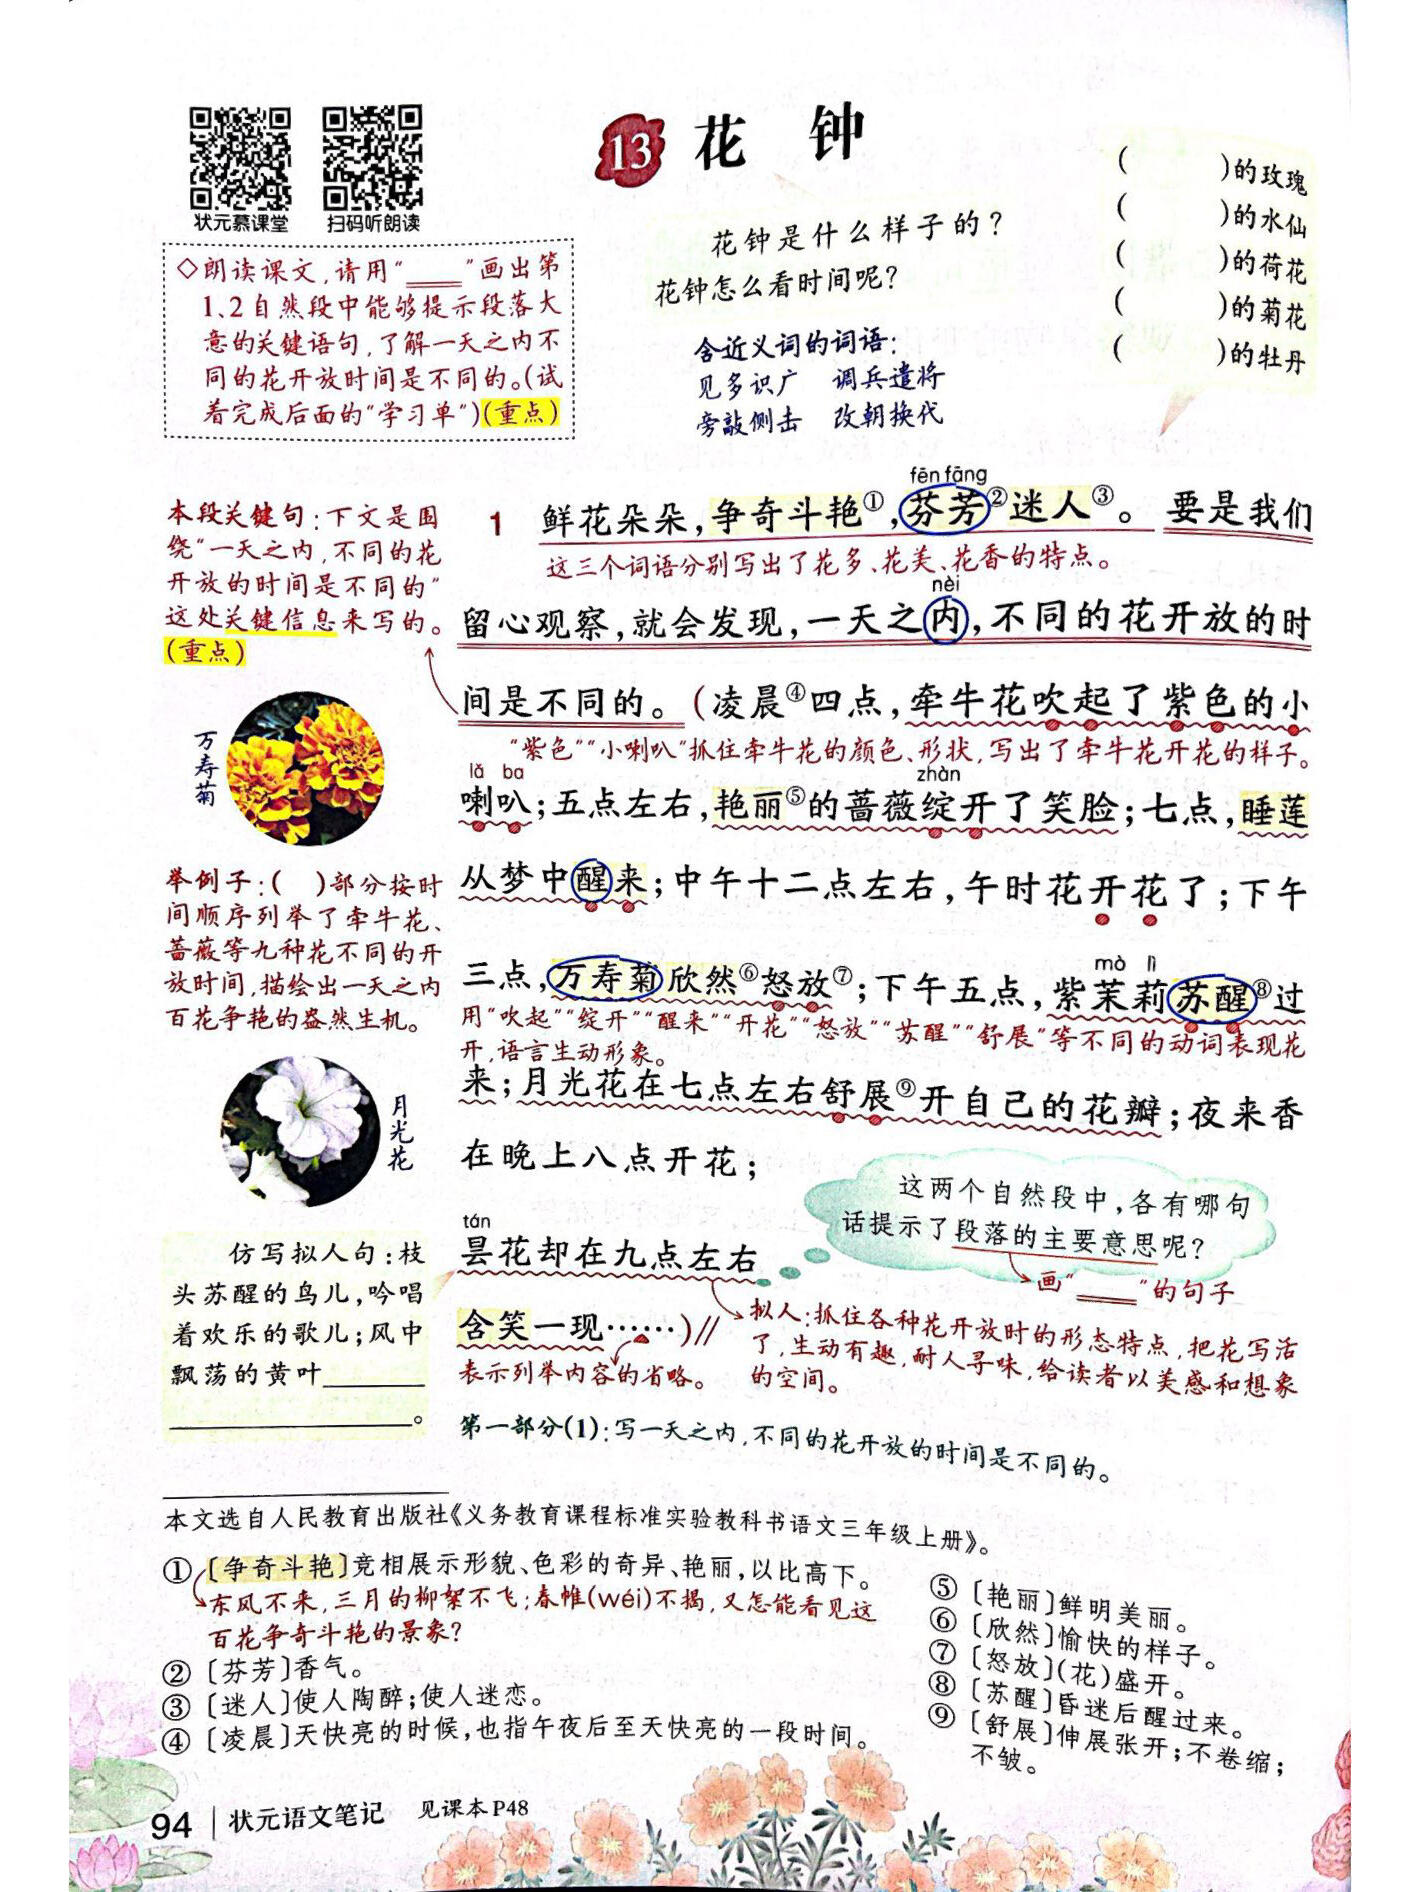 13 花 钟
状元慕课堂
扫码听朗读
◇朗读课文,请用“____”画出第
1、2自然段中能够提示段落大
意的关键语句,了解一天之内不
同的花开放时间是不同的。(试
着完成后面的“学习单”)(重点)
花钟是什么样子的?
花钟怎么看时间呢?
含近义词的词语:
见多识广 调兵遣将
旁敲侧击 改朝换代
( )的玫瑰
( )的水仙
( )的荷花
( )的菊花
( )的牡丹
本段关键句:下文是围
绕“一天之内,不同的花
开放的时间是不同的”
这处关键信息来写的。
(重点)
万寿菊
举例子:( )部分按时
间顺序列举了牵牛花、
蔷薇等九种花不同的开
放时间,描绘出一天之内
百花争艳的盎然生机。
月光花
仿写拟人句:枝
头苏醒的鸟儿,吟唱
着欢乐的歌儿;风中
飘荡的黄叶______
____________。
fēn fāng
1 鲜花朵朵,争奇斗艳①,芬芳②迷人③。要是我们
这三个词语分别写出了花多、花美、花香的特点。
nèi
留心观察,就会发现,一天之内,不同的花开放的时
间是不同的。(凌晨④四点,牵牛花吹起了紫色的小
“紫色”“小喇叭”抓住牵牛花的颜色、形状,写出了牵牛花开花的样子。
lǎ ba zhàn
喇叭;五点左右,艳丽⑤的蔷薇绽开了笑脸;七点,睡莲
从梦中醒来;中午十二点左右,午时花开花了;下午
mò lì
三点,万寿菊欣然⑥怒放⑦;下午五点,紫茉莉苏醒⑧过
用“吹起”“绽开”“醒来”“开花”“怒放”“苏醒”“舒展”等不同的动词表现花
开,语言生动形象。
来;月光花在七点左右舒展⑨开自己的花瓣;夜来香
在晚上八点开花;
tán
昙花却在九点左右
含笑一现……)//
表示列举内容的省略。
这两个自然段中,各有哪句
话提示了段落的主要意思呢?
画“____”的句子
拟人:抓住各种花开放时的形态特点,把花写活
了,生动有趣,耐人寻味,给读者以美感和想象
的空间。
第一部分(1):写一天之内,不同的花开放的时间是不同的。
本文选自人民教育出版社《义务教育课程标准实验教科书语文三年级上册》。
①〔争奇斗艳〕竞相展示形貌、色彩的奇异、艳丽,以比高下。
东风不来,三月的柳絮不飞;春帷(wéi)不揭,又怎能看见这
百花争奇斗艳的景象?
②〔芬芳〕香气。
③〔迷人〕使人陶醉;使人迷恋。
④〔凌晨〕天快亮的时候,也指午夜后至天快亮的一段时间。
⑤〔艳丽〕鲜明美丽。
⑥〔欣然〕愉快的样子。
⑦〔怒放〕(花)盛开。
⑧〔苏醒〕昏迷后醒过来。
⑨〔舒展〕伸展张开;不卷缩;
不皱。
94 | 状元语文笔记 见课本P48